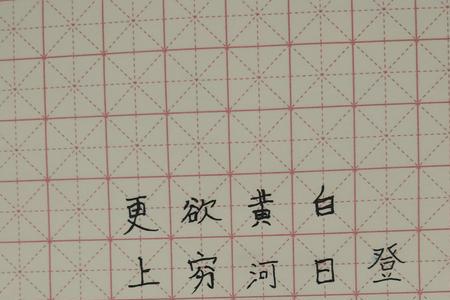 登
白日
黄河
欲穷
更上